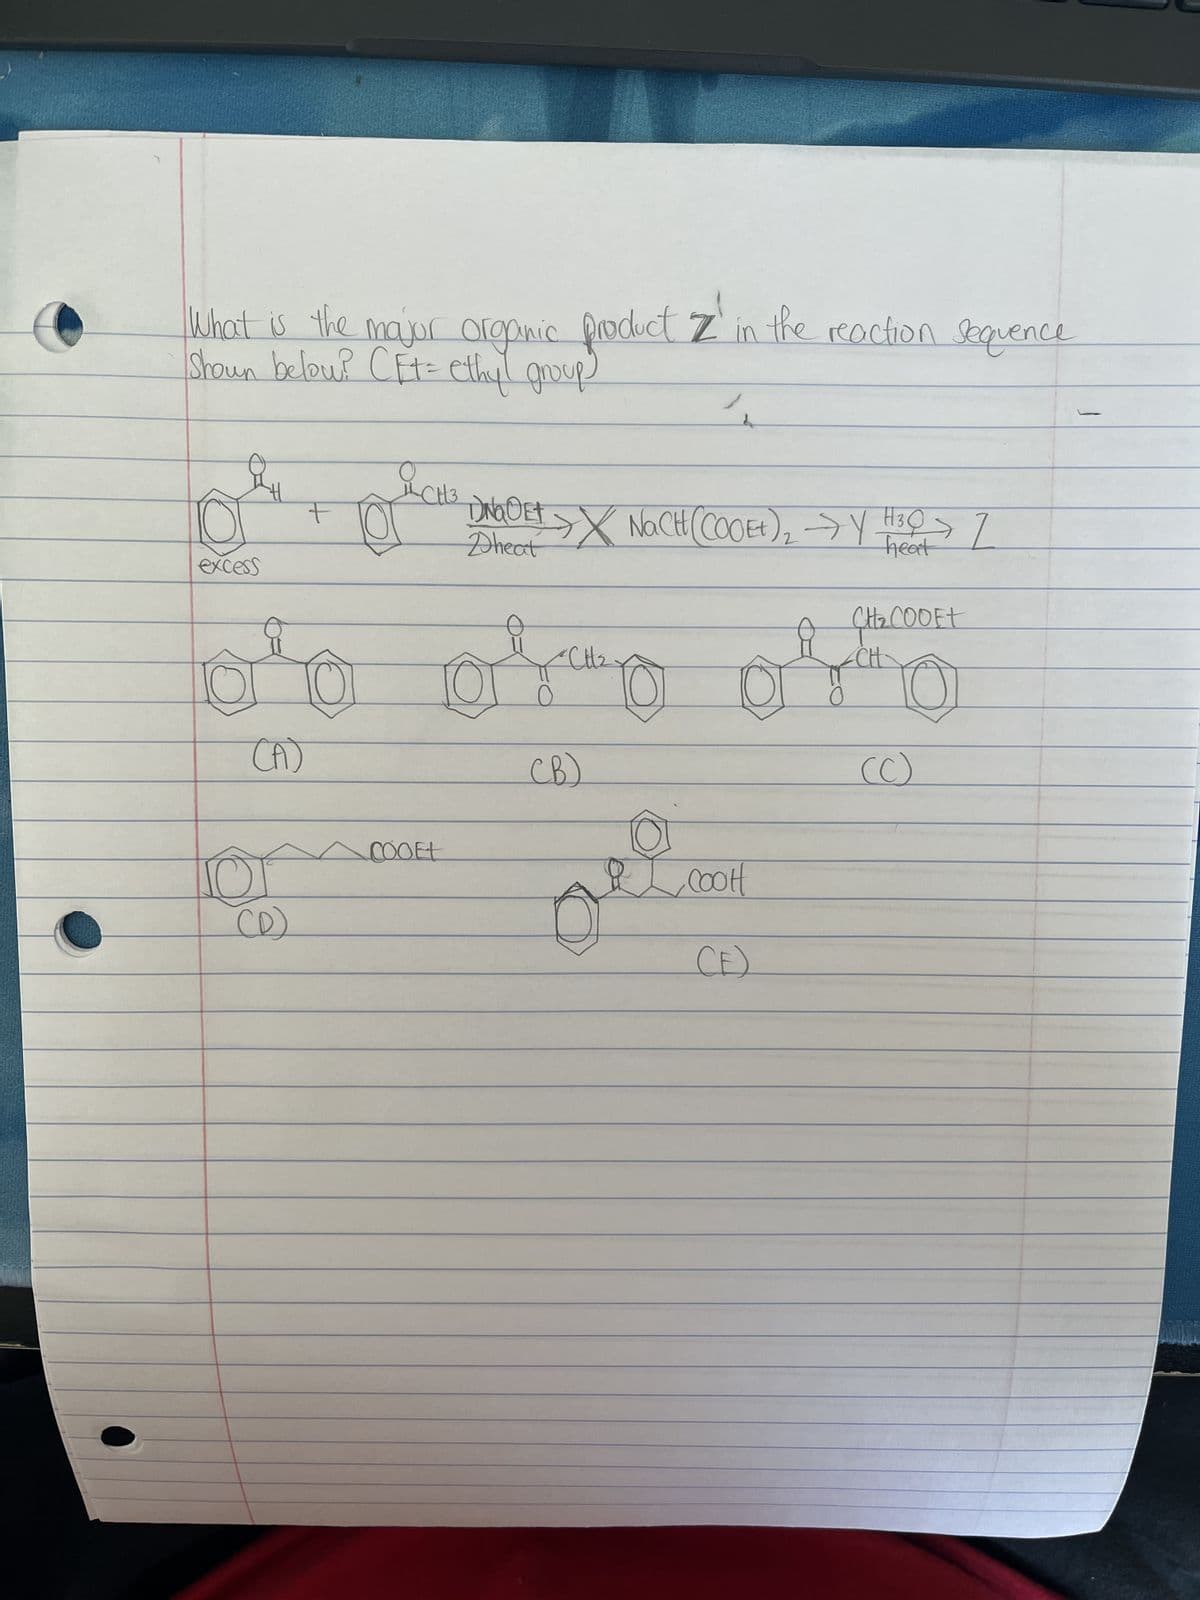 What is the major organic product Z in the reaction sequence
Shown below? (Et= ethyl group)
O
H
excess
+
O
CH3
1)NaOEt
2)heat
X NaCH(COOEt)2 → Y
H3O
heat
Z
O
(A)
O
CH2
O
(B)
O
CH2COOEt
CH
O
(C)
COOEt
(D)
O
COOH
(E)